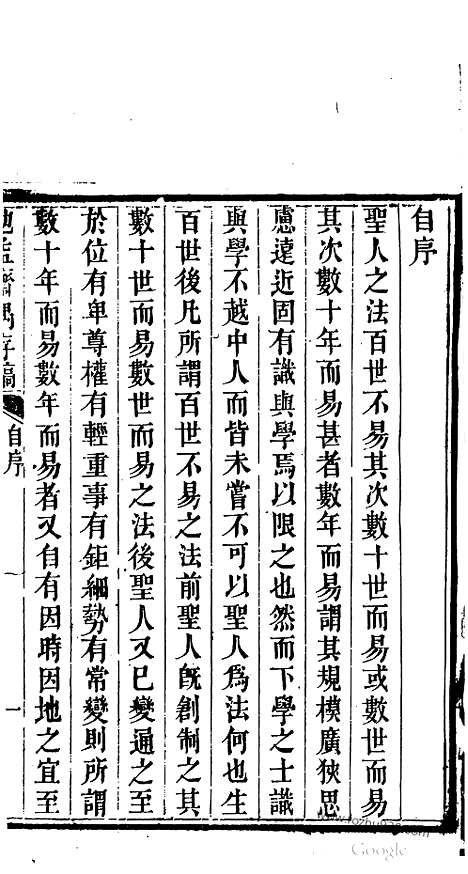 自序
聖人之法百世不易其次數十世而易或數世而易
其次數十年而易甚者數年而易謂其規模廣狹思
慮遠近固有識與學焉以限之也然而下學之士識
與學不越中人而皆未嘗不可以聖人爲法何也生
百世後凡所謂百世不易之法前聖人旣創制之其
數十世而易數世而易之法後聖人又已變通之至
於位有卑尊權有輕重事有鉅細勢有常變則所謂
數十年而易數年而易者又自有因時因地之宜至
存稿
自序
一
Google